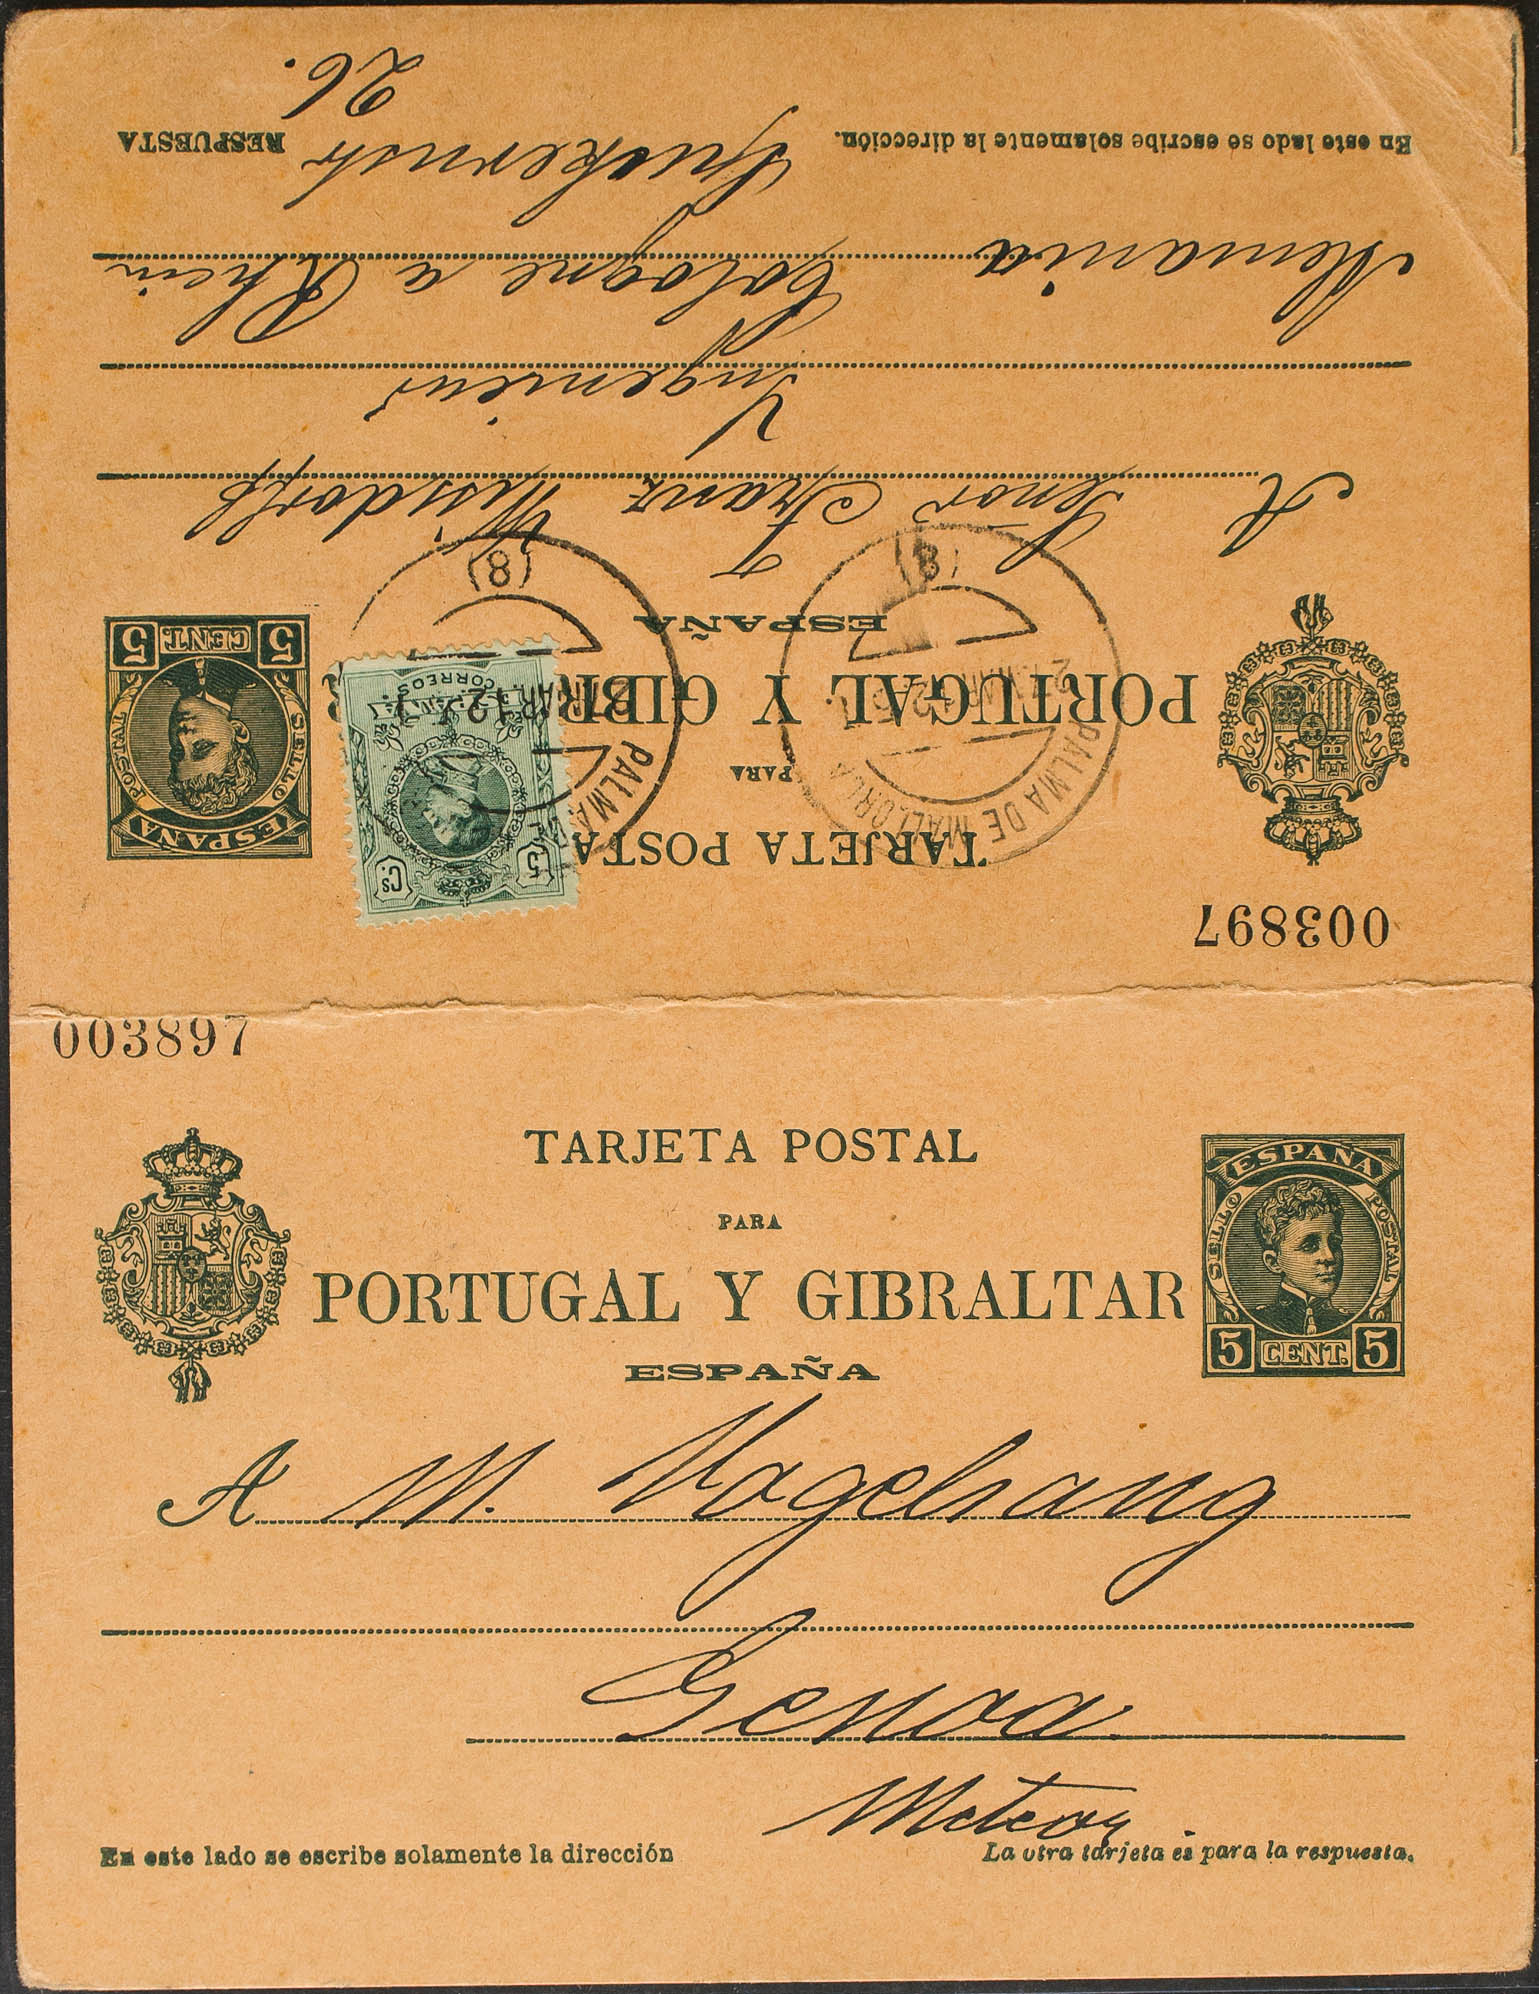 003897
TARJETA POSTAL
PARA
PORTUGAL Y GIBRALTAR
ESPAÑA
ESPAÑA
SELLO POSTAL
5 CENT. 5
A M. Vogelsang
Genoa
Meteor.
En este lado se escribe solamente la dirección
La otra tarjeta es para la respuesta.
003897
TARJETA POSTA
PARA
PORTUGAL Y GIBR
ESPAÑA
ESPAÑA
SELLO POSTAL
5 CENT. 5
15 Cs
ESPAÑA
CORREOS
PALMA DE MALLORCA
MAR 12
(8)
PALMA
27 MAR 12
(8)
A Senor Franz
Ingenieur
Alemania Cologne a Rhein
26.
En este lado se escribe solamente la dirección.
RESPUESTA